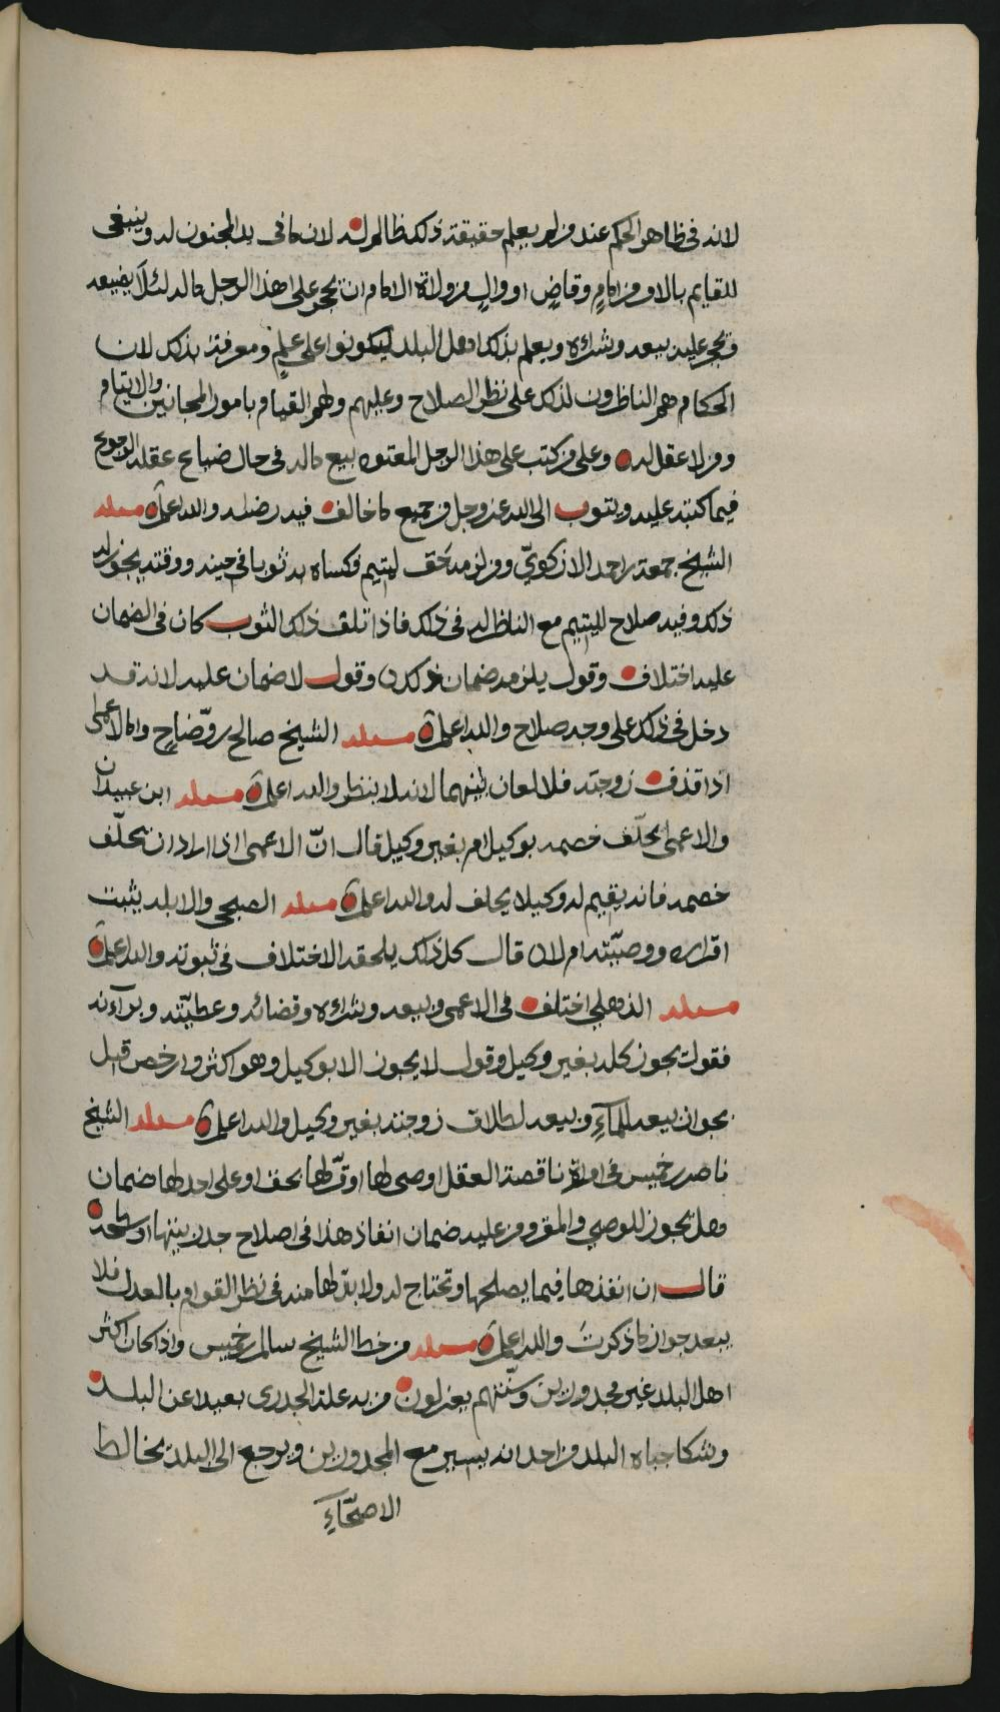 لانه في ظاهر الحكم عند من لم يعلم حقيقة ذلك ظالم له لان ما في يد المجنون له وينبغي
للقايم بالامر من امامٍ وقاضٍ او والٍ من ولاة الامام ان يحجر على هذا الرجل ماله لئلا يضيعه
ويحجر عليه بيعه وشراءه ويعلم بذلك اهل البلد ليكونوا على علمٍ ومعرفة بذلك لان
الحكام هم الناظرون لذلك على نظر الصلاح وعليهم ولهم القيام بامور المجانين والايتام
ومن لا عقل له وعلى من كتب على هذا الرجل المعتوه بيع ماله في حال ضياع عقله الرجوع
فيما كتبه عليه ويتوب الى الله عز وجل من جميع ما خالف فيه رضاه والله اعلم مسئله
الشيخ جمعة بن احمد الازكويّ ومن لزمه حَق ليتيم فكساه به ثوبا في حينه ووقته يجوز له
ذلك وفيه صلاح لليتيم مع الناظر له في ذلك فاذا تلف ذلك الثوب كان في الضمان
عليه اختلاف وقول يلزمه ضمان ذلك وقول لا ضمان عليه لانه قد
دخل في ذلك على وجه صلاح والله اعلم مسئله الشيخ صالح بن وضّاح واما الاعمى
اذا قذف زوجته فلا لعان بينهما لانه لا ينظر والله اعلم مسئله ابن عبيدان
والاعمى يحلّف خصمه بوكيل ام بغير وكيل قال انّ الاعمى اذا اراد ان يحلّف
خصمه فانه يقيم له وكيلا يحلف له والله اعلم مسئله الصبحي والابله يثبت
اقراره ووصيّته ام لا قال كل ذلك يلحقه الاختلاف في ثبوته والله اعلم
مسئله الذهلي اختلف في الاعمى في بيعه وشراءه وقضائه وعطيّته وبرآءته
فقول يجوز كله بغير وكيل وقول لا يجوز الا بوكيل وهو اكثر وارخص قيل
بجواز بيعه للمآءِ وبيعه لطلاق زوجته بغير وكيل والله اعلم مسئله الشيخ
ناصر بن خميس في امراة ناقصة العقل اوصى لها او اقرّ لها بحق او على احد لها ضمان
هل يجوز للوصي والمقر ومن عليه ضمان انفاذ هذا في اصلاح جدر بيتها او
قال ان انفذها فيما يصلحها وتحتاج له ولا بدّ لها منه في نظر القوام بالعدل فلا
يبعد جواز ما ذكرتَ والله اعلم مسئله من خط الشيخ سالم بن خميس واذا كان اكثر
اهل البلد غير مجدورين وسنّتهم يعزلون من به علة الجدري بعيدا عن البلد
وشكا جباه البلد من احد انه يسير مع المجدورين ويرجع الى البلد يخالط
الاصحّآءِ